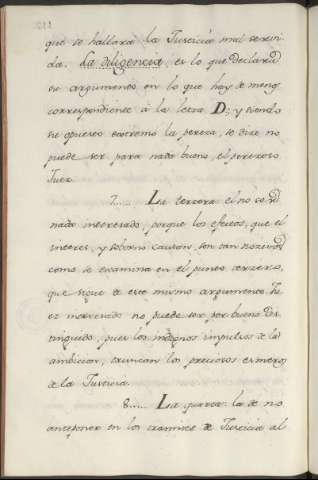 que se hallará la Justicia mal servi-
da. La diligencia, es lo que declara
se argumenta en lo que hay de meng
correspondiente à la letra D.; y siendo
su opuesto extremo la pereza, se dice no
puede ser para nada bueno, el perezoso
Juez.
7.... La tercera el no ser
nada interesado, porque los efectos, que el
interes, y soborno causan, son tan nocivos
como se examina en el punto tercero,
que sigue de este mismo argumento. Si
es interesado no puede ser por bueno dis-
tinguido, pues los indignos impulsos de la
ambicion, truncan los preciosos esmeros
de la Justicia.
8.... La quarta: la de no
anteponer en los tramites de Justicia al